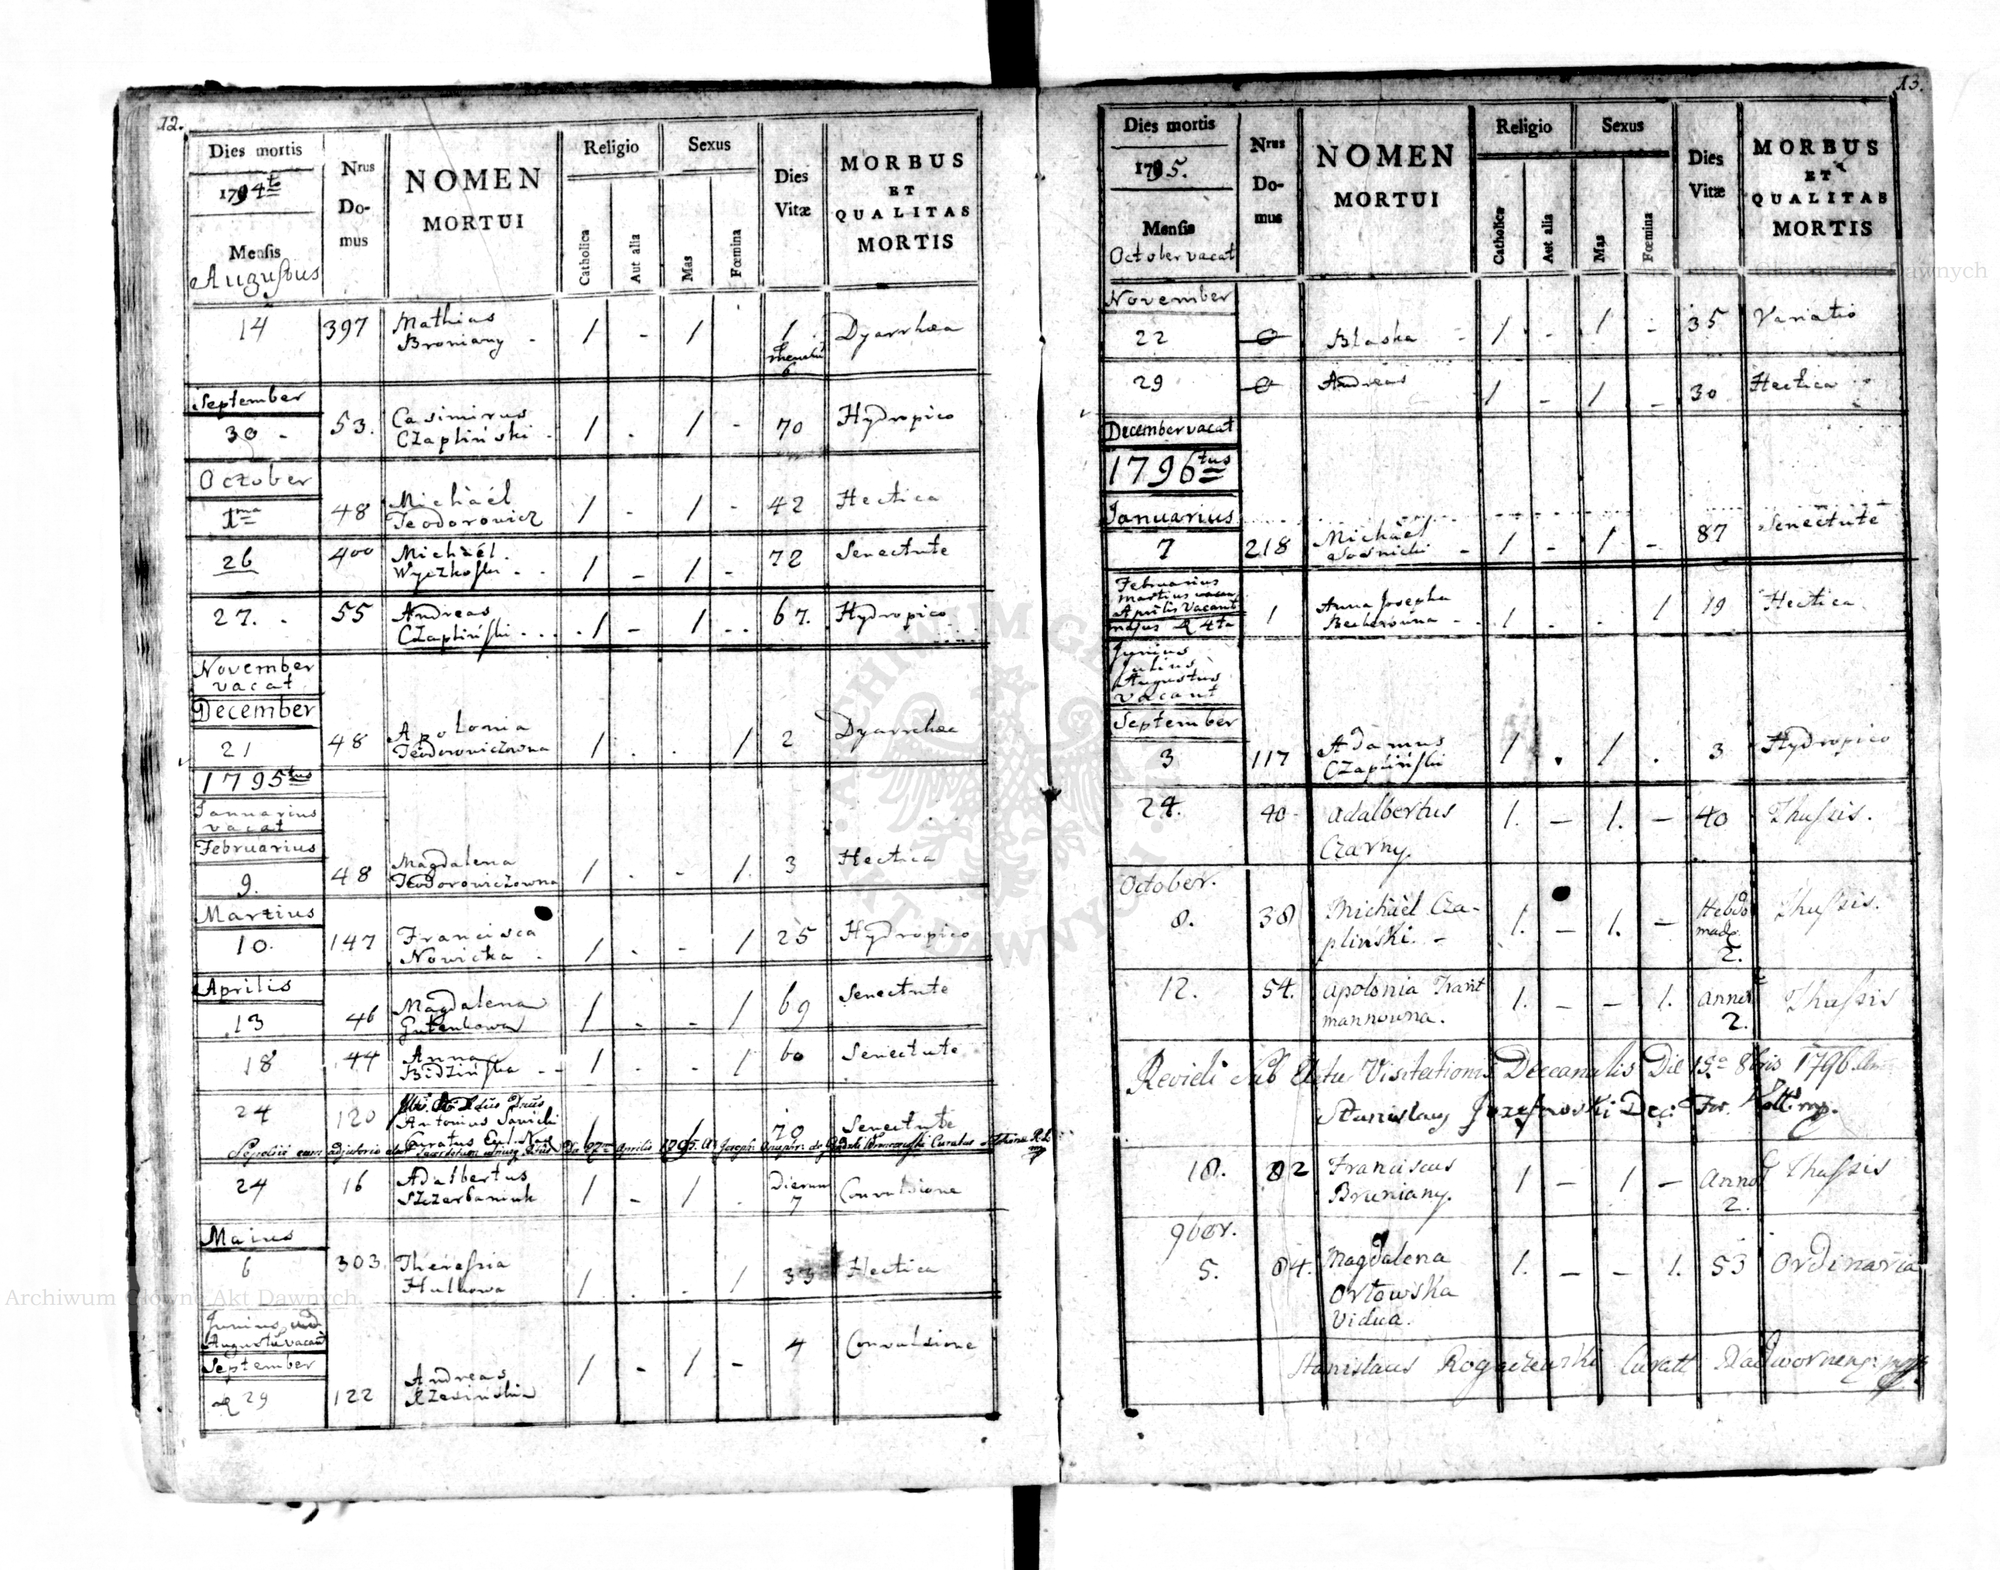 12.
Dies mortis
1794t
Mensis
Augustus
Nrus
Do-
mus
NOMEN
MORTUI
Religio
Catholica
Aut alia
Sexus
Mas
Fœmina
Dies
Vitæ
MORBUS
ET
QUALITAS
MORTIS
14 397 Mathias Broniany - / - / 1 6 Dyarrhæa
September
30 - 53. Casimirus Czapliński - / - / - 70 Hydropico
October
1ma 48 Michaël Teodorowicz / - / - 42 Hectica
26 400 Michaël Wyczkoski / - / - 72 Senectute
27. 55 Andreas Czapliński / - / - 67. Hydropico
November
vacat
December
21 48 Apolonia Teodorowiczowna / . . / 2 Dyarrhæa
1795tus
Januarius
vacat
Februarius
9. 48 Magdalena Teodorowiczowna / - - / 3 Hectica
Martius
10. 147 Francisca Nowicka / - - / 25 Hydropico
Aprilis
13 46 Magdalena / - - / 69 Senectute
18 44 Anna Bidzińska / - - / 60 Senectute
24 120 Antonius / / 70 Senectute
24 16 Adalbertus Szczerbaniuk / - / . Dierum 7 Convulsione
Maius
6 303 Theressia Hulkowa / . . / 33 Hectica
Junius
Augustus vacant
September
29 122 Andreas / - / - 4 Convulsione
13.
Dies mortis
1795.
Mensis
October vacat
Nrus
Do-
mus
NOMEN
MORTUI
Religio
Catholica
Aut alia
Sexus
Mas
Fœmina
Dies
Vitæ
MORBUS
ET
QUALITAS
MORTIS
November
22 Blaska - / - / - 35 Variatio
29 Andreas / - / - 30 Hectica
December vacat
1796tus
Januarius
7 218 Michaël Sosnicki - / - / - 87 Senectute
Februarius
Martius
Aprilis Vacant
Majus 4ta 1 Anna Josepha Beckerowna / . . / 19 Hectica
Junius
Julius
Augustus
vacant
September
3 117 Adamus Czapliński / . / . 3 Hydropico
24. 40 Adalbertus Czarny. 1. - 1. - 40 Thussis.
October.
8. 38 Michaël Cza-
pliński. - 1. - 1. - Hebdo
madæ 2. Thussis.
12. 54. Apolonia Trant
mannowna. 1. - - 1. 2. Thussis
Revidi sub Actu Visitationis Decanalis Die 15a 8bris 1796
Stanislaus Jozefowski Dec:
18. 82 Franciscus Bruniany. 1 - 1 - 2. Thussis
9ber.
5. 84. Magdalena
Orłowska
Vidua. 1. - - 1. 53 Ordinaria
Stanislaus Rogaczewski Curatt Nadwornens: mpp